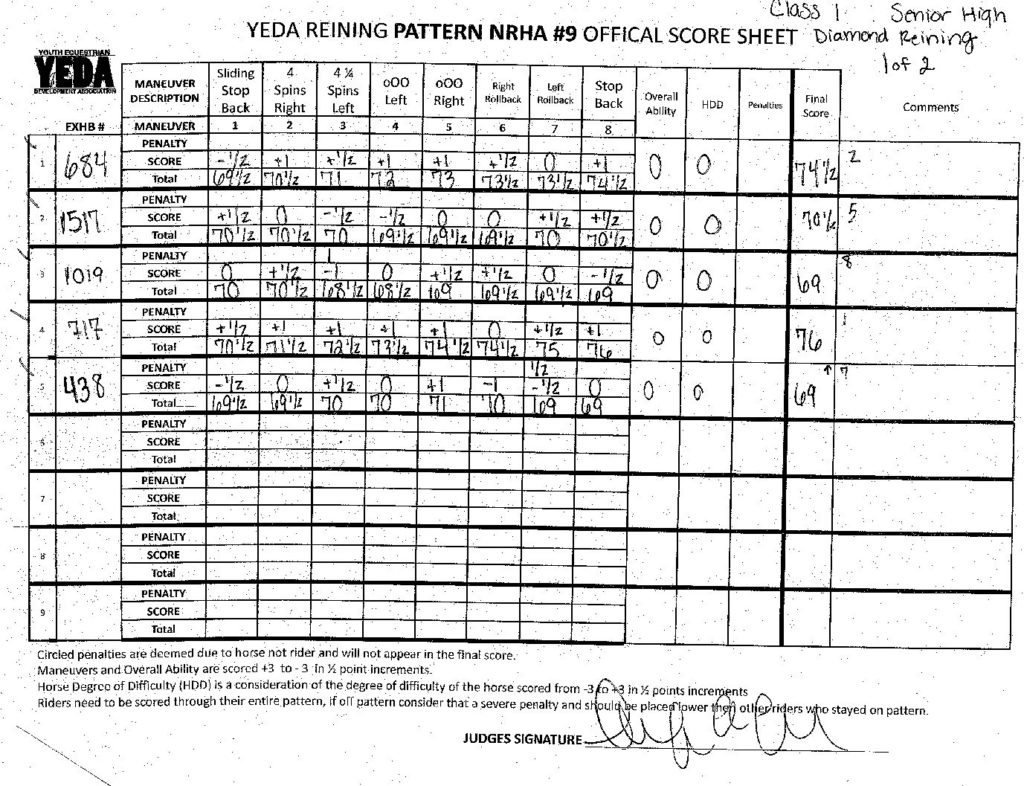 Class 1 Senior High
YEDA REINING PATTERN NRHA #9 OFFICAL SCORE SHEET Diamond Reining
1 of 2
YOUTH EQUESTRIAN
YEDA
DEVELOPMENT ASSOCIATION
MANEUVER DESCRIPTION Sliding Stop Back 4 Spins Right 4 ¼ Spins Left oOO Left oOO Right Right Rollback Left Rollback Stop Back Overall Ability HDD Penalties Final Score Comments
EXHB # MANEUVER 1 2 3 4 5 6 7 8
PENALTY
1 684 SCORE -1/2 +1 +1/2 +1 +1 +1/2 0 +1 0 0 74 1/2 2
Total 69 1/2 70 1/2 71 72 73 73 1/2 73 1/2 74 1/2
PENALTY
2 1517 SCORE +1/2 0 -1/2 -1/2 0 0 +1/2 +1/2 0 0 70 1/2 5
Total 70 1/2 70 1/2 70 69 1/2 69 1/2 69 1/2 70 70 1/2
PENALTY 1
3 1019 SCORE 0 +1/2 -1 0 +1/2 +1/2 0 -1/2 0 0 69 8
Total 70 70 1/2 68 1/2 68 1/2 69 69 1/2 69 1/2 69
PENALTY
4 717 SCORE +1/2 +1 +1 +1 +1 0 +1/2 +1 0 0 76 1
Total 70 1/2 71 1/2 72 1/2 73 1/2 74 1/2 74 1/2 75 76
PENALTY 1/2
5 438 SCORE -1/2 0 +1/2 0 +1 -1 -1/2 0 0 0 69 ↑ 7
Total 69 1/2 69 1/2 70 70 71 70 69 69
PENALTY
6 SCORE
Total
PENALTY
7 SCORE
Total
PENALTY
8 SCORE
Total
PENALTY
9 SCORE
Total
Circled penalties are deemed due to horse not rider and will not appear in the final score.
Maneuvers and Overall Ability are scored +3 to - 3 in ½ point increments.
Horse Degree of Difficulty (HDD) is a consideration of the degree of difficulty of the horse scored from -3 to +3 in ½ points increments
Riders need to be scored through their entire pattern, if off pattern consider that a severe penalty and should be placed lower then other riders who stayed on pattern.
JUDGES SIGNATURE